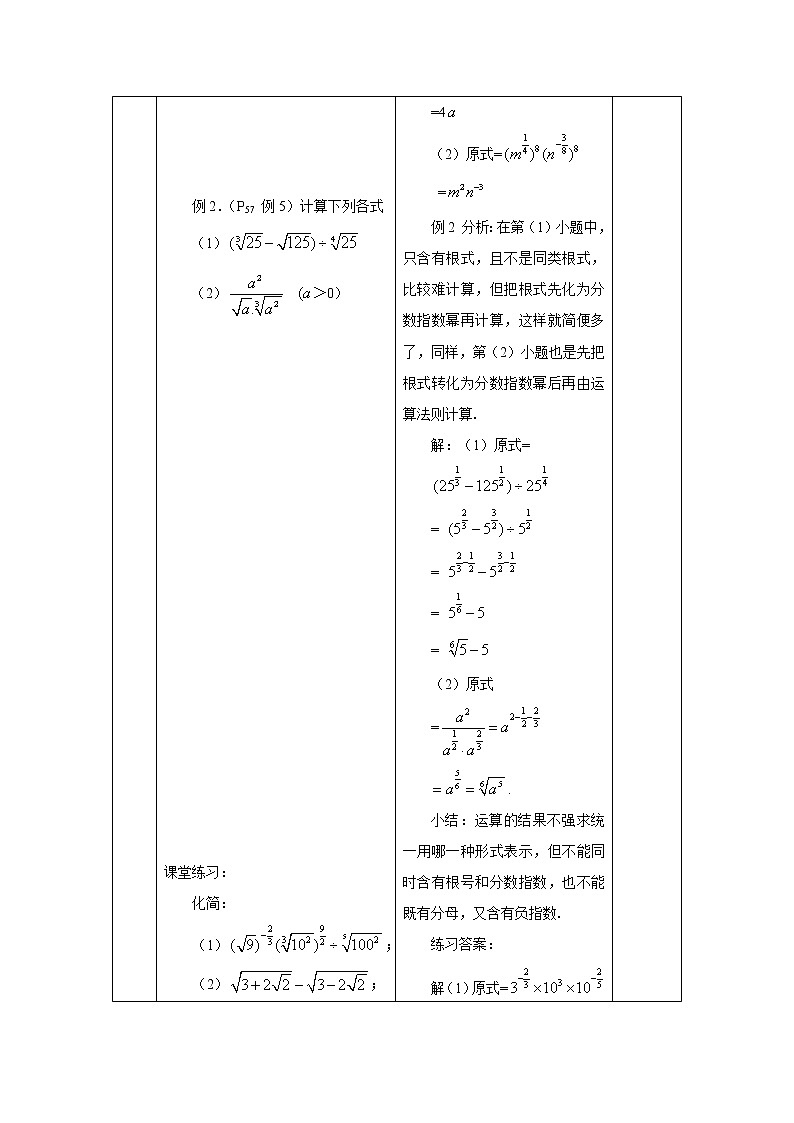 例2.（P57 例5）计算下列各式
（1）(∛25－√125)÷∜25
（2）a²/(√a.∛a²) （a＞0）
课堂练习：
化简：
（1）(√9)^(－2/3)(∛10²)^(9/2)÷⁵√100²；
（2）√(3+2√2)－√(3－2√2)；
=4a
（2）原式=(m^(1/4))⁸(n^(－3/8))⁸
=m²n⁻³
例2 分析：在第（1）小题中，
只含有根式，且不是同类根式，
比较难计算，但把根式先化为分
数指数幂再计算，这样就简便多
了，同样，第（2）小题也是先把
根式转化为分数指数幂后再由运
算法则计算.
解：（1）原式=
(25^(1/3)－125^(1/2))÷25^(1/4)
= (5^(2/3)－5^(3/2))÷5^(1/2)
= 5^(2/3－1/2)－5^(3/2－1/2)
= 5^(1/6)－5
= ⁶√5－5
（2）原式
=a²/(a^(1/2)·a^(2/3))=a^(2－1/2－2/3)
=a^(5/6)=⁶√a⁵.
小结：运算的结果不强求统
一用哪一种形式表示，但不能同
时含有根号和分数指数，也不能
既有分母，又含有负指数.
练习答案：
解（1）原式=3^(－2/3)×10³×10^(－2/5)